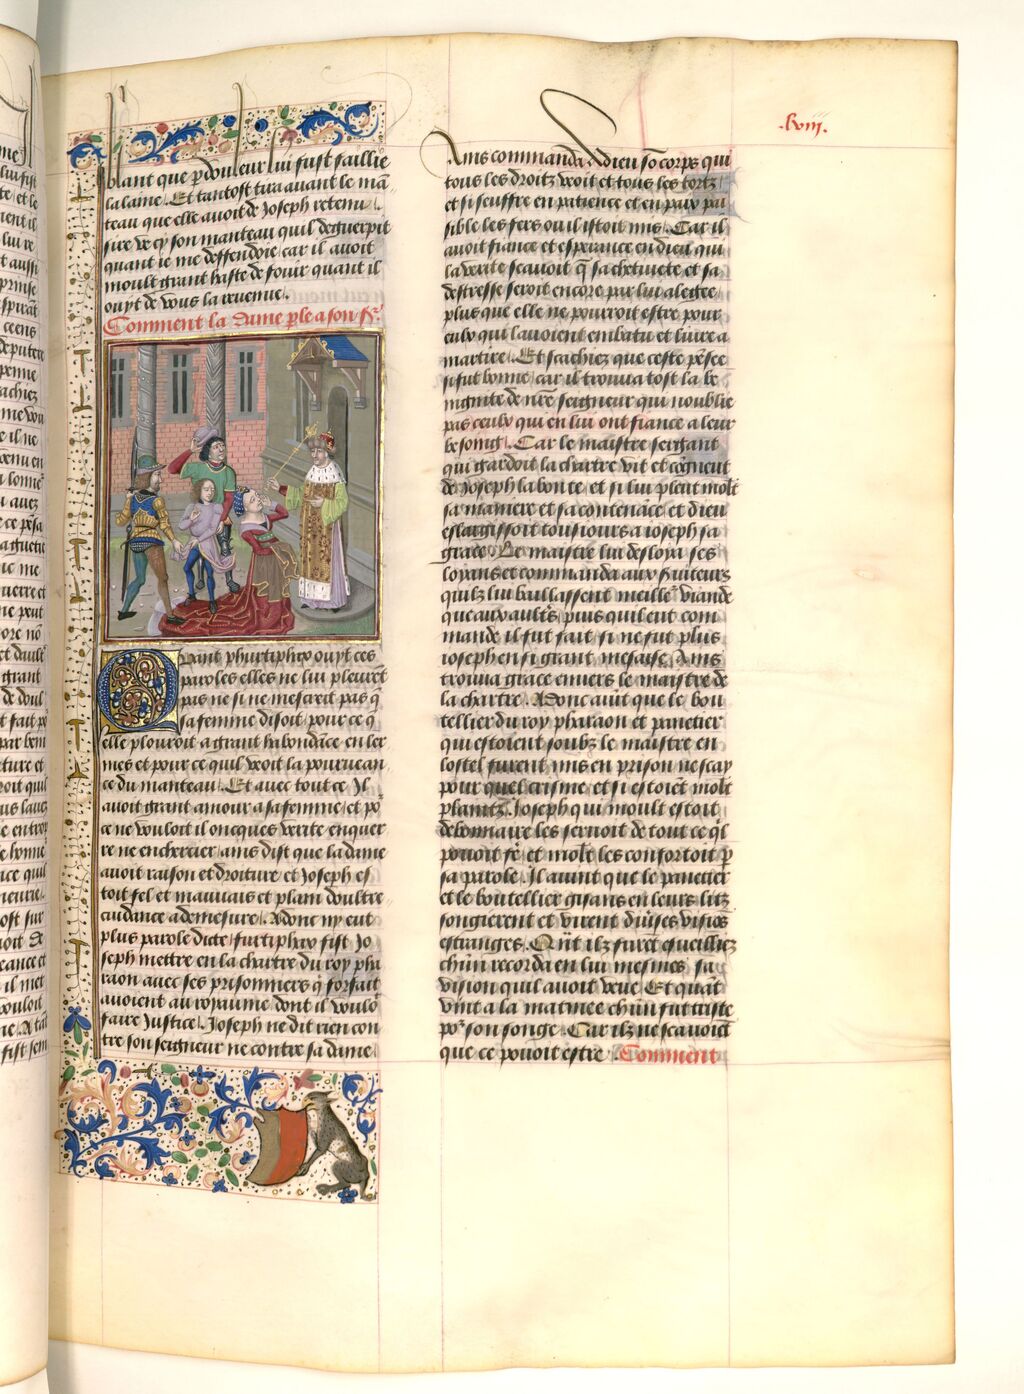 .lviii.
blant que p douleur lui fust saillie
la laine. Et tantost tira auant le mã
teau que elle auoit de Joseph retenu.
sire ve cy son manteau quil deguerpit
quant ie me deffendoie car il auoit
moult grant haste de fouir quant il
ouyt de vous la venue.
Comment la dame ple a son sr.
Quant phurtiphar ouyt ces
paroles elles ne lui pleurẽt
pas ne si ne mescreit pas q̃
sa femme disoit pour ce q̃
elle plouroit a grant habondãce en ler
mes et pour ce quil veoit la pouruean
ce du manteau. Et auec tout ce Il
auoit grant amour a sa femme et po
ce ne vouloit il oncques verite enquer
re ne encherchier ains dist que la dame
auoit raison et droiture et Joseph es
toit fel et mauuais et plain doultre
cuidance a demesure. Adonc ny eut
plus parole dicte furtiphar fist Jo
seph mettre en la chartre du roy pha
raon auec ses prisonniers q̃ forfait
auoient au royaume dont il vouloit
faire Justice. Joseph ne dit rien con
tre son seigneur ne contre sa dame
Ains commanda A dieu sõ corps qui
tous les droitz veoit et tous les tortz
et si seuffre en patience et en paix pai
sible les fers ou il estoit mis. Car il
auoit fiance et esperance en dieu qui
la verite scauoit q̃ sa chetiuete et sa
destresse seroit encore par lui alegee
plus que elle ne pourroit estre pour
eulx qui lauoient embatu et liure a
martire. Et sachiez que ceste pẽsee
si fut bonne car il trouua tost la be
nignite de nr̃e seigneur qui noublie
pas ceulx qui en lui ont fiance a leur
besoing. Car le maistre sergant
qui gardoit la chartre vit et cõgneut
de Joseph la bonte et si lui pleut molt
sa maniere et sa contenãce et dieu
eslargissoit tousiours a ioseph sa
grace. Le maistre lui desloya ses
loyens et commanda aux seruiteurs
quilz lui baillassent meille viande
que aux aultrs puis quil eut com
mande il fut fait si ne fut plus
ioseph en si grant mesaise. Ains
trouua grace enuers le maistre de
la chartre. Adonc auit que le bou
tellier du roy pharaon et panetier
qui estoient soubz le maistre en
lostel furent mis en prison ne scay
pour quel crisme et si estoiẽt molt
plaintz. Joseph qui moult estoit
debonnaire les seruoit de tout ce ql
pouoit fẽ et molt les confortoit p
sa parole. Il auint que le panetier
et le boutellier gisans en leurs litz
songierent et virent diuẽses visiõs
estranges. Qñt ilz furẽt esueilliez
chũn recorda en lui mesmes sa
vision quil auoit veue Et quãt
vint a la matinee chũn fut triste
por son songe. Car ilz ne scauoiẽt
que ce pouoit estre. Comment